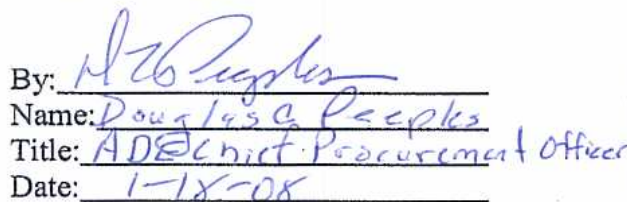 By:
Name: Douglas C Peeples
Title: ADE Chief Procurement Officer
Date: 1-18-08